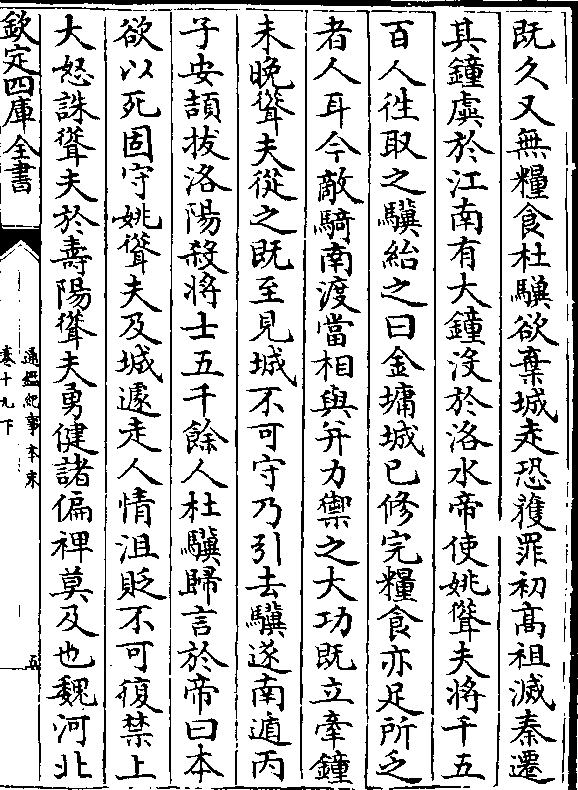 既久又無糧食杜驥欲棄城走恐獲罪初髙祖滅秦遷
其鐘虡於江南有大鐘沒於洛水帝使姚聳夫將千五
百人徃取之驥紿之曰金墉城已修完糧食亦足所乏
者人耳今敵騎南渡當相與并力禦之大功既立牽鐘
未晚聳夫從之既至見城不可守乃引去驥遂南遁丙
子安頡拔洛陽殺將士五千餘人杜驥歸言於帝曰本
欲以死固守姚聳夫及城遽走人情沮貶不可復禁上
大怒誅聳夫於壽陽聳夫勇健諸偏裨莫及也魏河北
欽定四庫全書
通鑑紀事本末
卷十九下
五